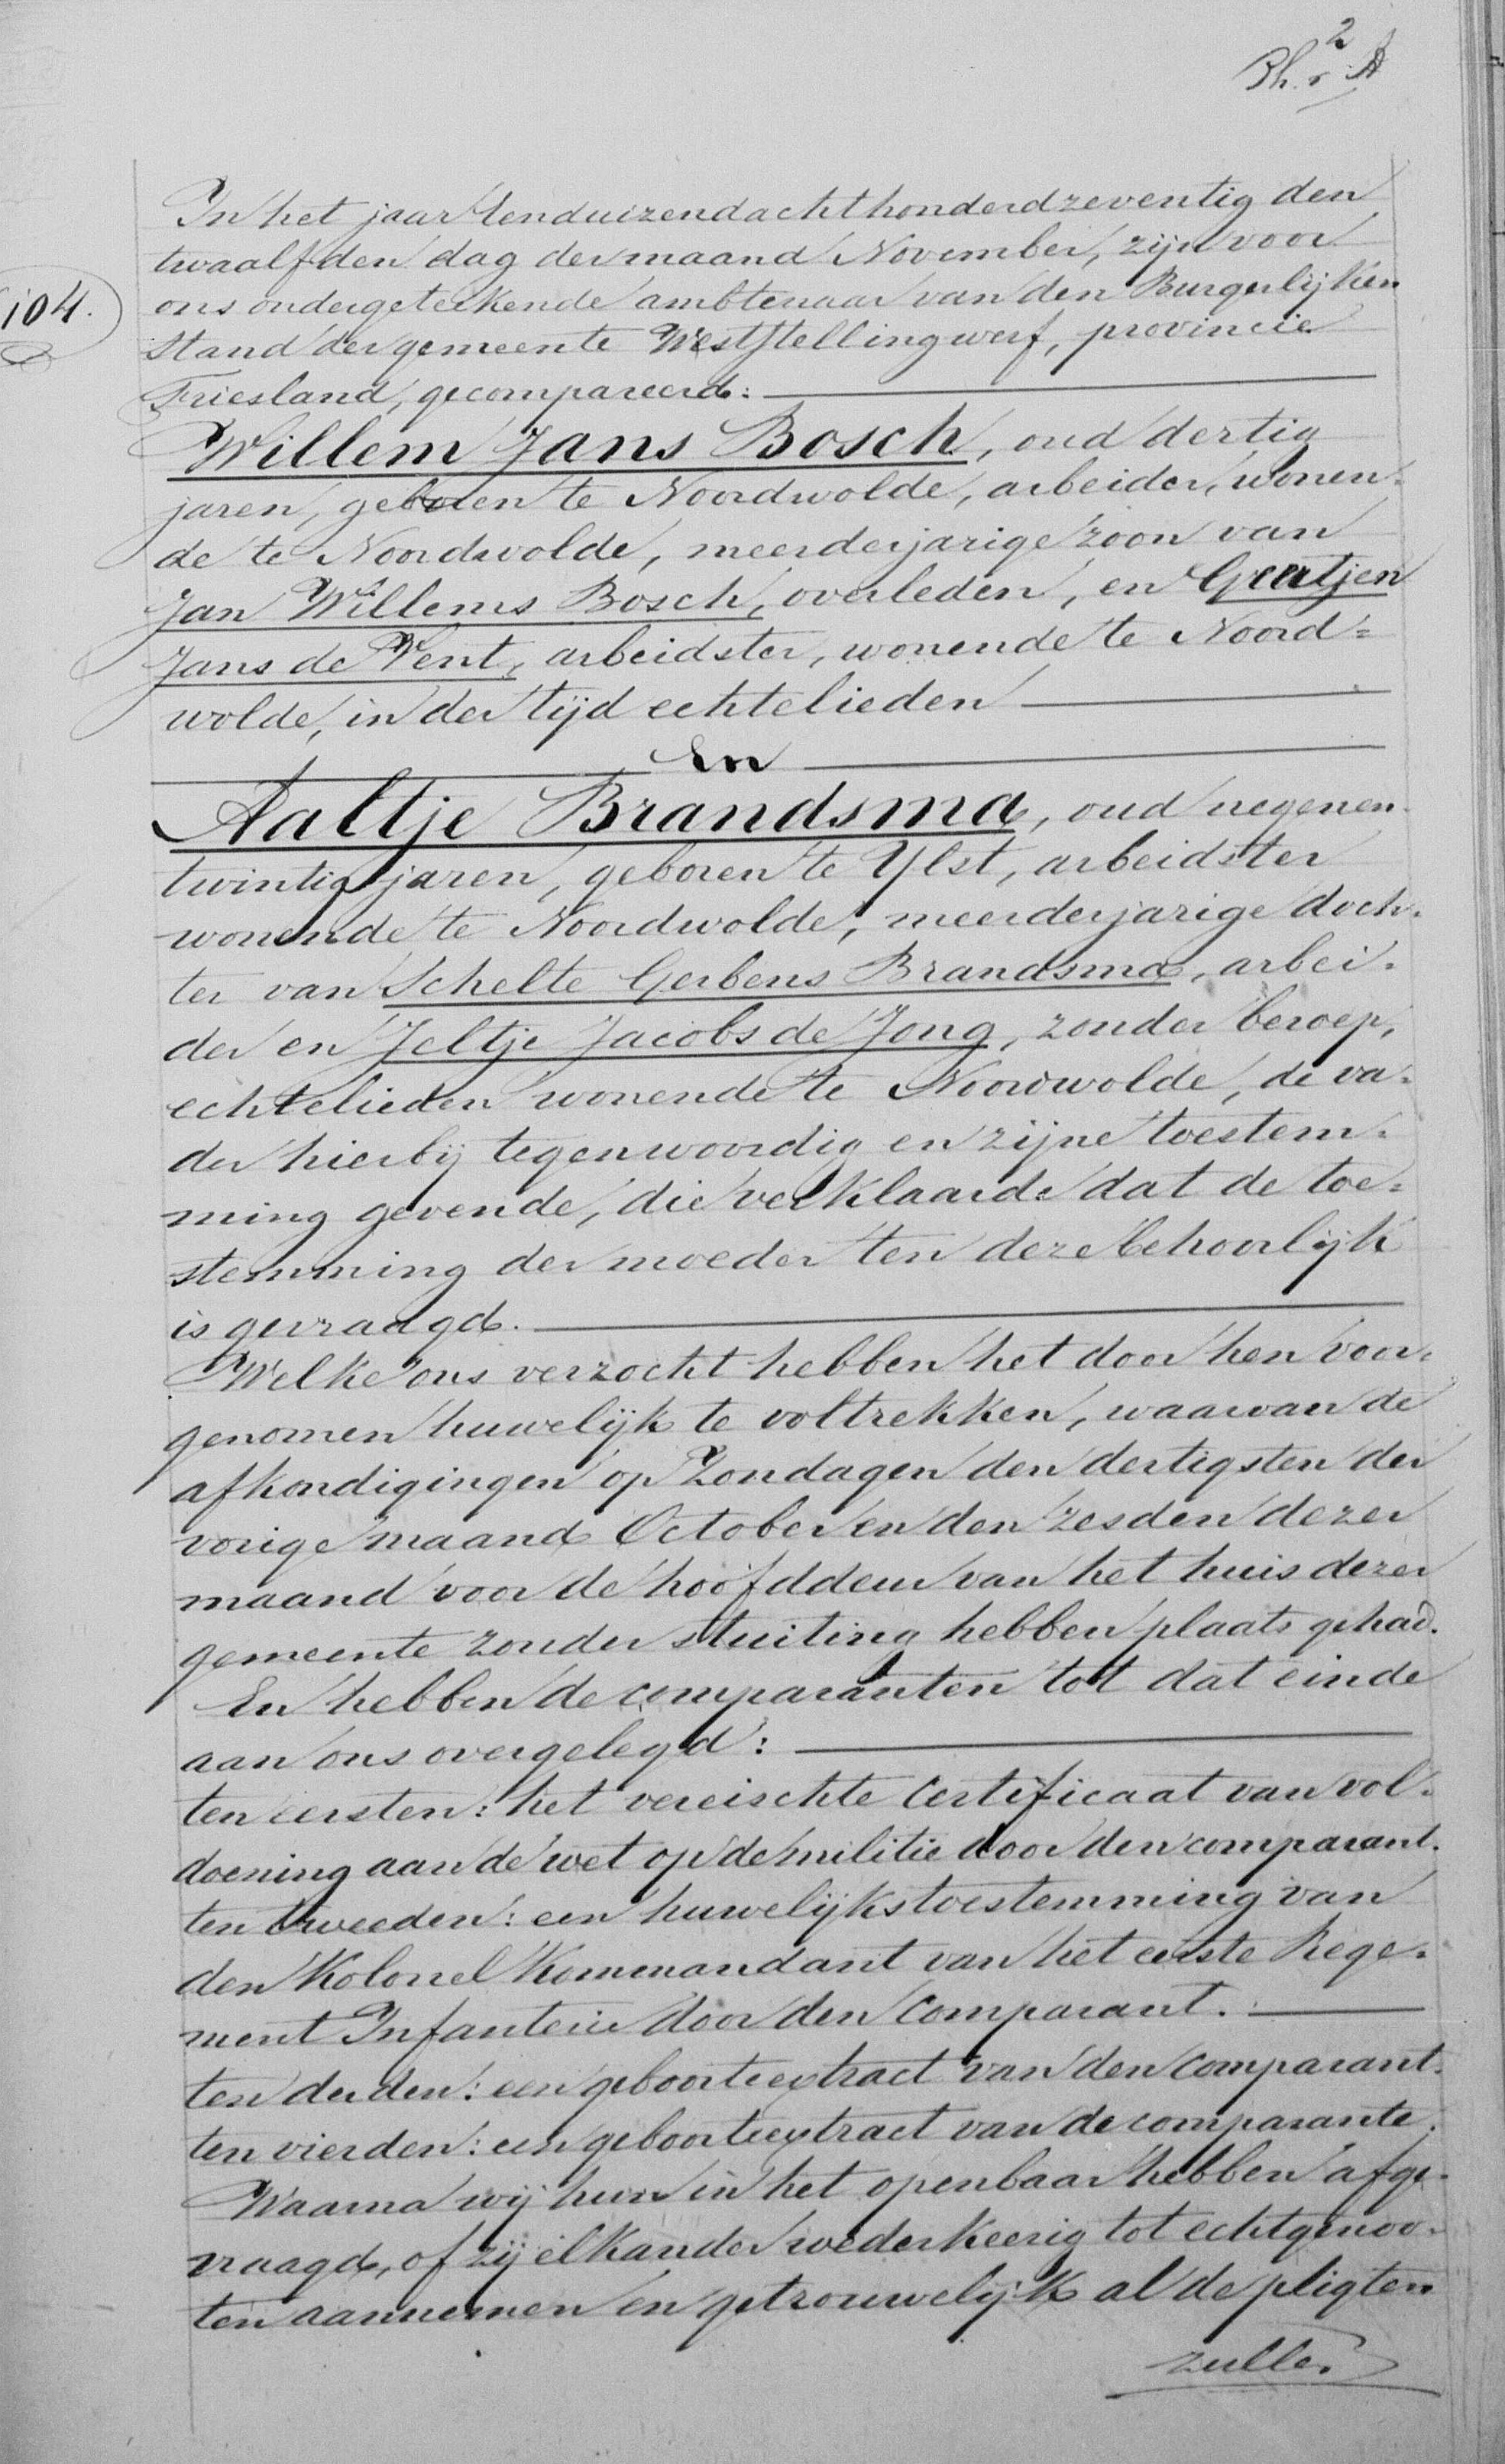 2
104.
In het jaar eenduizendachthonderdzeventig den
twaalfden dag der maand November, zijn voor
ons ondergeteekende ambtenaar van den Burgerlijken
Stand der gemeente Weststellingwerf, provincie
Friesland, gecompareerd:
Willem Jans Bosch, oud dertig
jaren, geboren te Noordwolde, arbeider, wonen-
de te Noordwolde, meerderjarige zoon van
Jan Willems Bosch, overleden, en Geertjen
Jans de Vent, arbeidster, wonende te Noord=
wolde, in der tijd echtelieden
En
Aaltje Brandsma, oud negenen-
twintig jaren, geboren te Ylst, arbeidster
wonende te Noordwolde, meerderjarige doch-
ter van Schelte Gerbens Brandsma, arbei-
der en Jeltje Jacobs de Jong, zonder beroep,
echtelieden wonende te Noordwolde, de va-
der hierbij tegenwoordig en zijne toestem-
ming gevende, die verklaarde dat de toe=
stemming der moeder ten deze behoorlijk
is gevraagd.
Welke ons verzocht hebben het door hen voor=
genomen huwelijk te voltrekken, waarvan de
afkondigingen op Zondagen den dertigsten der
vorige maand October en den zesden dezer
maand voor de hoofddeur van het huis dezer
gemeente zonder stuiting hebben plaats gehad.
En hebben de comparanten tot dat einde
aan ons overgelegd:
ten eersten: het vereischte certificaat van vol-
doening aan de wet op de militie door den comparant.
ten tweeden: een huwelijkstoestemming van
den Kolonel Kommandant van het eerste Rege-
ment Infanterie door den comparant.
ten derden: een geboorteextract van den comparant.
ten vierden: een geboorteextract van de comparante.
Waarna wij hun in het openbaar hebben afge-
vraagd, of zij elkander wederkeerig tot echtgenoo-
ten aannemen en getrouwelijk al de pligten
zullen